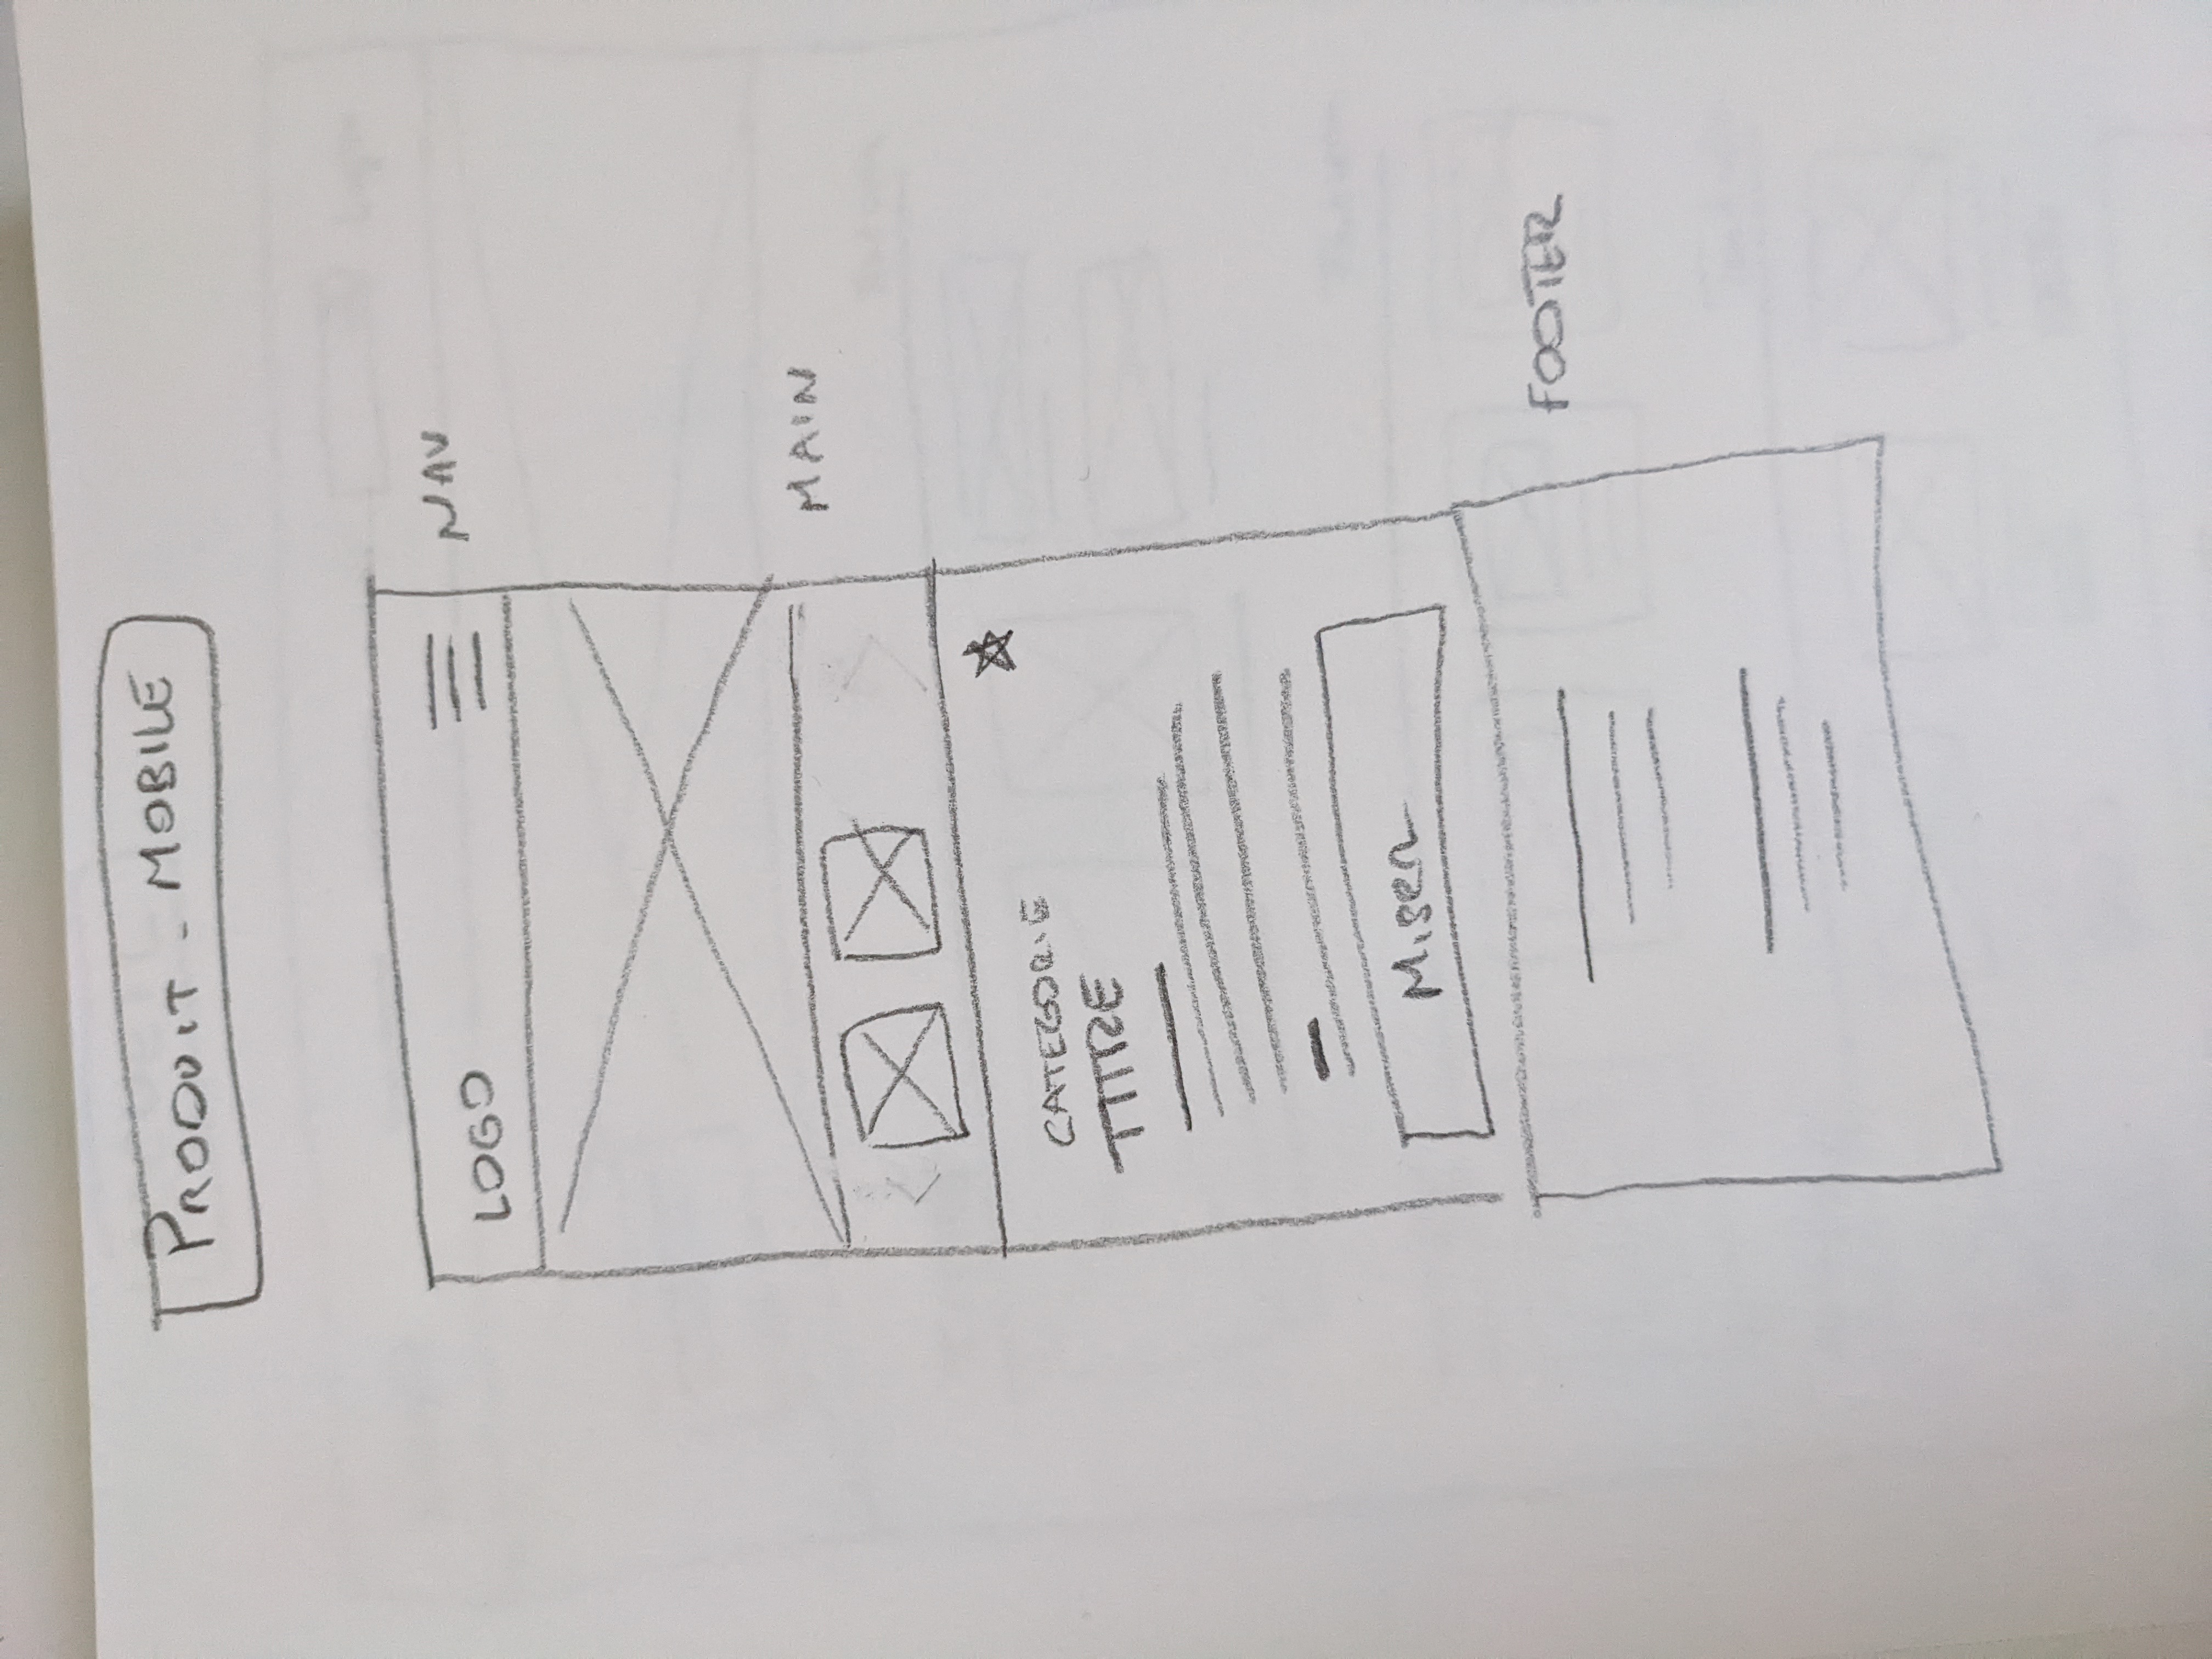 PRODUIT - MOBILE
LOGO
NAV
MAIN
CATEGORIE
TITRE
MISER
FOOTER